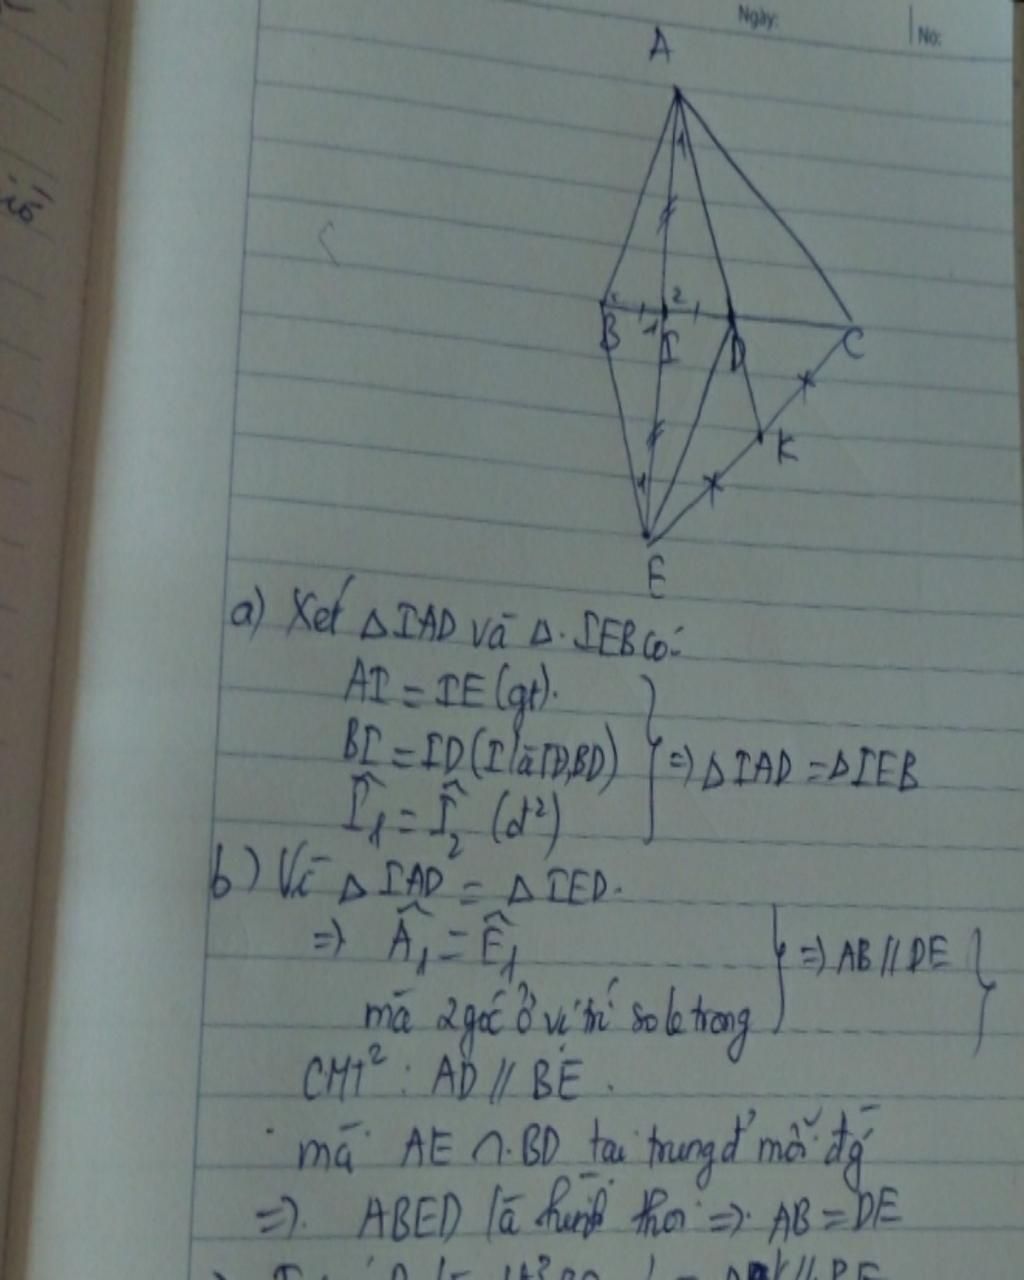 Ngày:
No:
A
1
2
B
1
I
D
C
K
1
E
a) Xét △IAD và △.IEB có:
AI = IE (gt).
BI = ID (I là TĐ,BD)
⇒ △IAD = △IEB
Î₁ = Î₂ (đ²)
b) Vì △IAD = △IED.
⇒ Â₁ = Ê₁
⇒ AB // DE
mà 2 góc ở vị trí so le trong
CMT² : AD // BE.
mà AE ∩ BD tại trung đ' mỗi đg
⇒ ABED là hình thoi ⇒ AB = DE